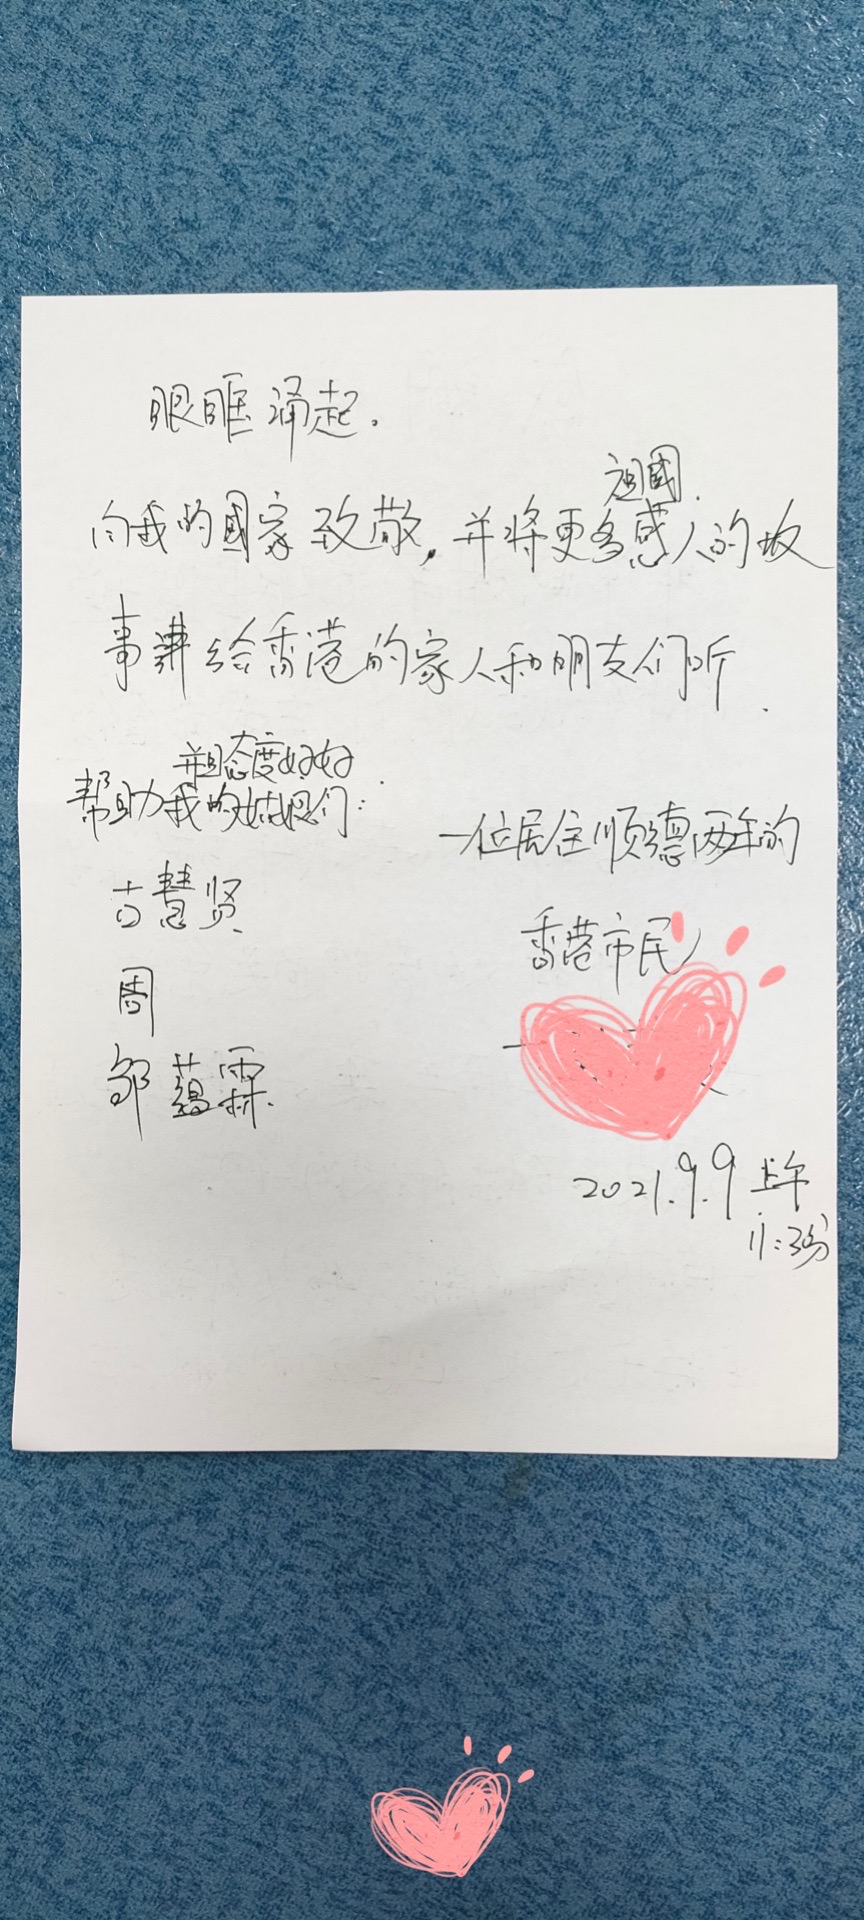 眼眶涌起.
祖國.
向我的國家致敬，并将更多感人的故
事讲给香港的家人和朋友们听.
并且态度好好
帮助我的姑娘们：
古慧贤
周
邹蕴霖.
一位居住顺德两年的
香港市民
2021.9.9 上午